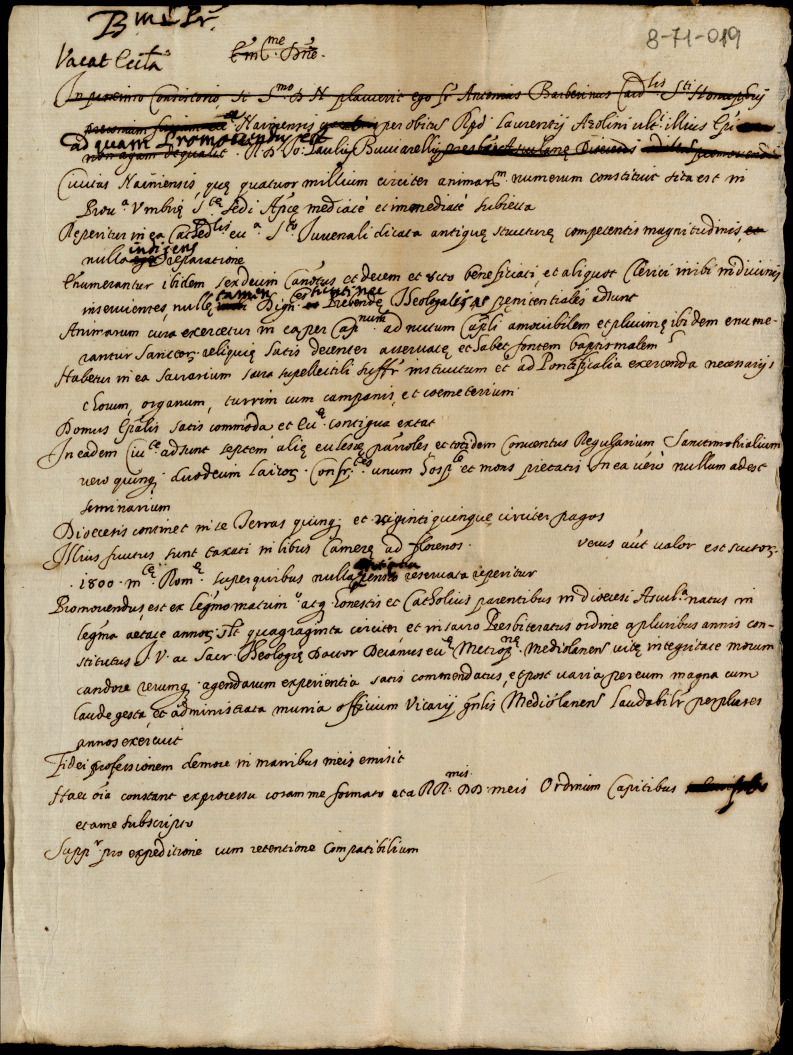 B.me Pr.
8-71-019
Vacat Eccl.a Em.me Dne.
In proximo Consistorio, si S.mo D N placuerit ego fr Antonius Barberinus Card.lis S.ti Honuphrij
Naimiensis per obitus Rpd Laurentij Azolini ult.i illius Epi
ad quam Promovendus est R.D. Jo: Paulus Buccarellus
Civitas Narniensis, quę quatuor millium circiter animarum numerum constituit sita est in
Prov.a Umbrię S.tę Sedi Ap.cę mediatè et immediatè subiecta
Reperitur in ea Cathed.lis ecc.a S.to Iuvenali dicata antiquę structurę competentis magnitudinis, et
nulla indigens reparatione
Enumerantur ibidem sexdecim Can.tus et decem et octo beneficiati, et aliquot Clerici inibi in divinis
inservientes, nullę tamen Dign.es Prebendę Theologalis, et pęnitentiales adsunt
Animarum cura exercetur in ea per Cap.num ad nutum Cap.li amovibilem et plurimę ibidem enume-
rantur Sanctor. reliquię satis decenter asservatę et habet fontem baptismalem
Habetur in ea sacrarium sacra supellectili suffr. instructum et ad Pontificalia exercenda necessarijs
chorum, organum, turrim cum campanis, et coemeterium
Domus Ep.alis satis commoda et Ecc.ę contigua extat
In eadem Civ.te adsunt septem alię ecclesię parroles, et totidem Conventus Regularium Sanctimonialium
vero quinq. duodecim laicor. Confr.tes unum hosp.le et mons pietatis In ea verò nullum adest
seminarium
Diocesis continet in se Terras quinq. et viginti quinque circiter pagos
Illius fructus sunt taxati in libris Camerę ad florenos verus aut. valor est scutor.
1800 m.tę Rom.ę super quibus nulla pensio reservata reperitur
Promovendus, est ex leg.mo matrim.o atq. honestis et Catholicis parentibus in diocesi Ascul.a natus in
leg.ma aetate annor. s.lt quadraginta circiter et in sacro Presbiteratus ordine a pluribus annis con-
stitutus I. V. ac Sacr. Theologię Doctor Decanus ecc.ę Metrop.nę Mediolanens vitę integritate morum
candore rerumq. agendarum experientia satis commendatus, et post varia per eum magna cum
laude gesta, et administrata munia officium Vicarij gnlis Mediolanens laudabilr per plures
annos exercuit
Fidei professionem demore in manibus meis emisit
Haec oia constant ex processu coram me formato et a RR.mis DD. meis Ordinum Capitibus
et a me subscripto
Supp.r pro expeditione cum retentione Compatibilium